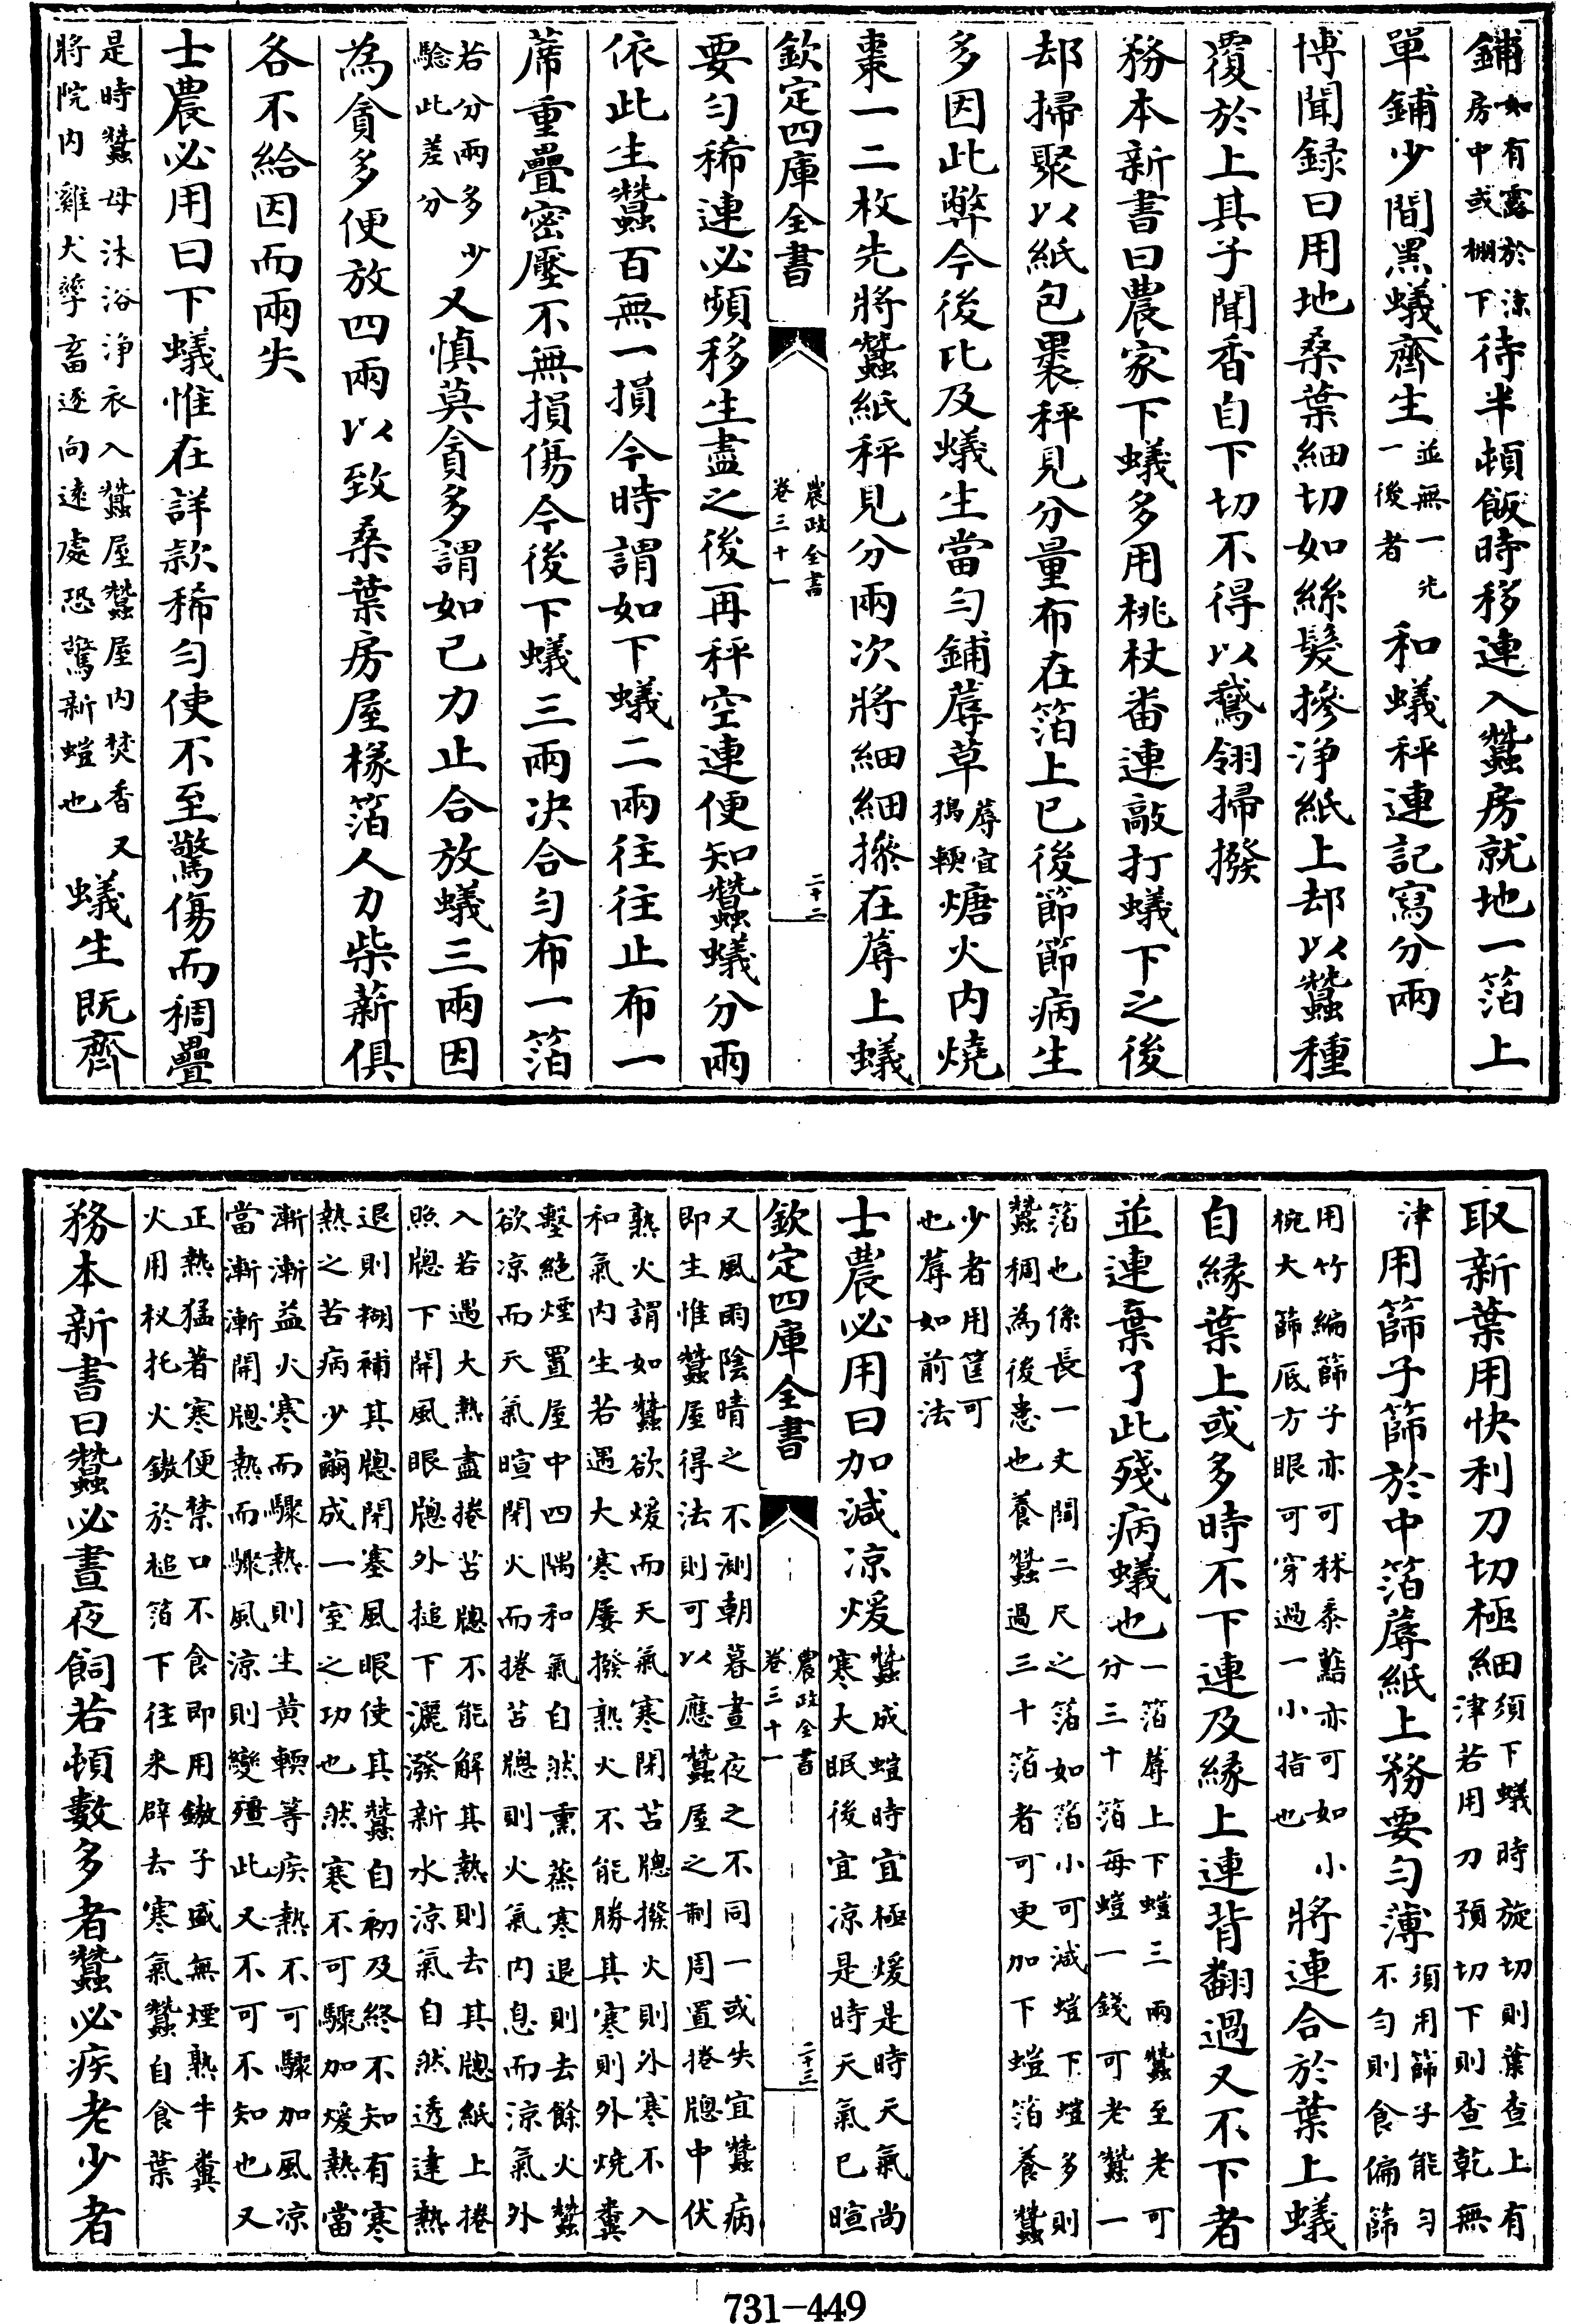 鋪如有露於涼房中或棚下待半頓飯時移連入蠶房就地一箔上
單鋪少間黑蟻齊生並無一先一後者和蟻秤連記寫分兩
博聞録曰用地桑葉細切如絲髮摻淨紙上却以蠶種
覆於上其子聞香自下切不得以鵞翎掃撥
務本新書曰農家下蟻多用桃杖番連敲打蟻下之後
却掃聚以紙包裹秤見分量布在箔上已後節節病生
多因此弊今後比及蟻生當勻鋪蓐草蓐宜搗輭煻火内燒
棗一二枚先將蠶紙秤見分兩次將細細摻在蓐上蟻
欽定四庫全書 農政全書卷三十一 二十二
要勻稀連必頻移生盡之後再秤空連便知蠶蟻分兩
依此生蠶百無一損今時謂如下蟻二兩往往止布一
蓆重疊密壓不無損傷今後下蟻三兩決合勻布一箔
若分兩多少驗此差分又慎莫貪多謂如己力止合放蟻三兩因
為貪多便放四兩以致桑葉房屋椽箔人力柴薪俱
各不給因而兩失
士農必用曰下蟻惟在詳款稀勻使不至驚傷而稠疊
是時蠶母沐浴淨衣入蠶屋蠶屋内焚香又將院内雞犬孳畜逐向遠處恐驚新螘也蟻生既齊
取新葉用快利刀切極細須下蟻時旋切則葉查上有津若用刀預切下則查乾無
津用篩子篩於中箔蓐紙上務要勻薄須用篩子能勻不勻則食偏篩
用竹編篩子亦可秫黍䕸亦可如小椀大篩底方眼可穿過一小指也將連合於葉上蟻
自緣葉上或多時不下連及緣上連背翻過又不下者
並連棄了此殘病蟻也一箔蓐上下螘三兩蠶至老可分三十箔每螘一錢可老蠶一
箔也係長一丈闊二尺之箔如箔小可減螘下螘多則蠶稠為後患也養蠶過三十箔者可更加下螘箔養蠶
少者用筐可也蓐如前法
士農必用曰加減涼煖蠶成螘時宜極煖是時天氣尚寒大眠後宜涼是時天氣已暄
欽定四庫全書 農政全書卷三十一 二十三
又風雨陰晴之不測朝暮晝夜之不同一或失宜蠶病即生惟蠶屋得法則可以應蠶屋之制周置捲牕中伏
熟火謂如蠶欲煖而天氣寒閉苫牕撥火則外寒不入和氣内生若遇大寒屢撥熟火不能勝其寒則外燒糞
墼絶煙置屋中四隅和氣自然熏蒸寒退則去餘火蠶欲涼而天氣暄閉火而捲苫牕則火氣内息而涼氣外
入若遇大熱盡捲苫牕不能解其熱則去其牕紙上捲照牕下開風眼牕外搥下灑潑新水涼氣自然透達熱
退則糊補其牕閉塞風眼使其蠶自初及終不知有寒熱之苦病少繭成一室之功也然寒不可驟加煖熱當
漸漸益火寒而驟熱則生黄輭等疾熱不可驟加風凉當漸漸開牕熱而驟風涼則變殭此又不可不知也又
正熱猛著寒便禁口不食即用鏾子盛無煙熟牛糞火用杈托火鏾於槌箔下往来辟去寒氣蠶自食葉
務本新書曰蠶必晝夜飼若頓數多者蠶必疾老少者
731-449